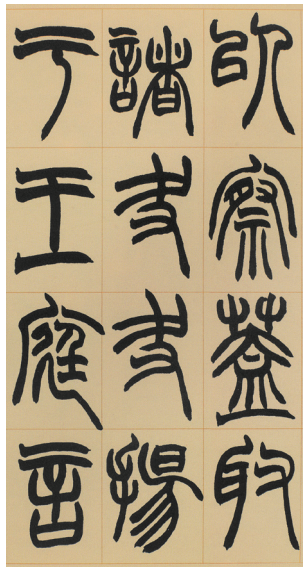 以察蓋取
諸夬夬揚
于王庭言